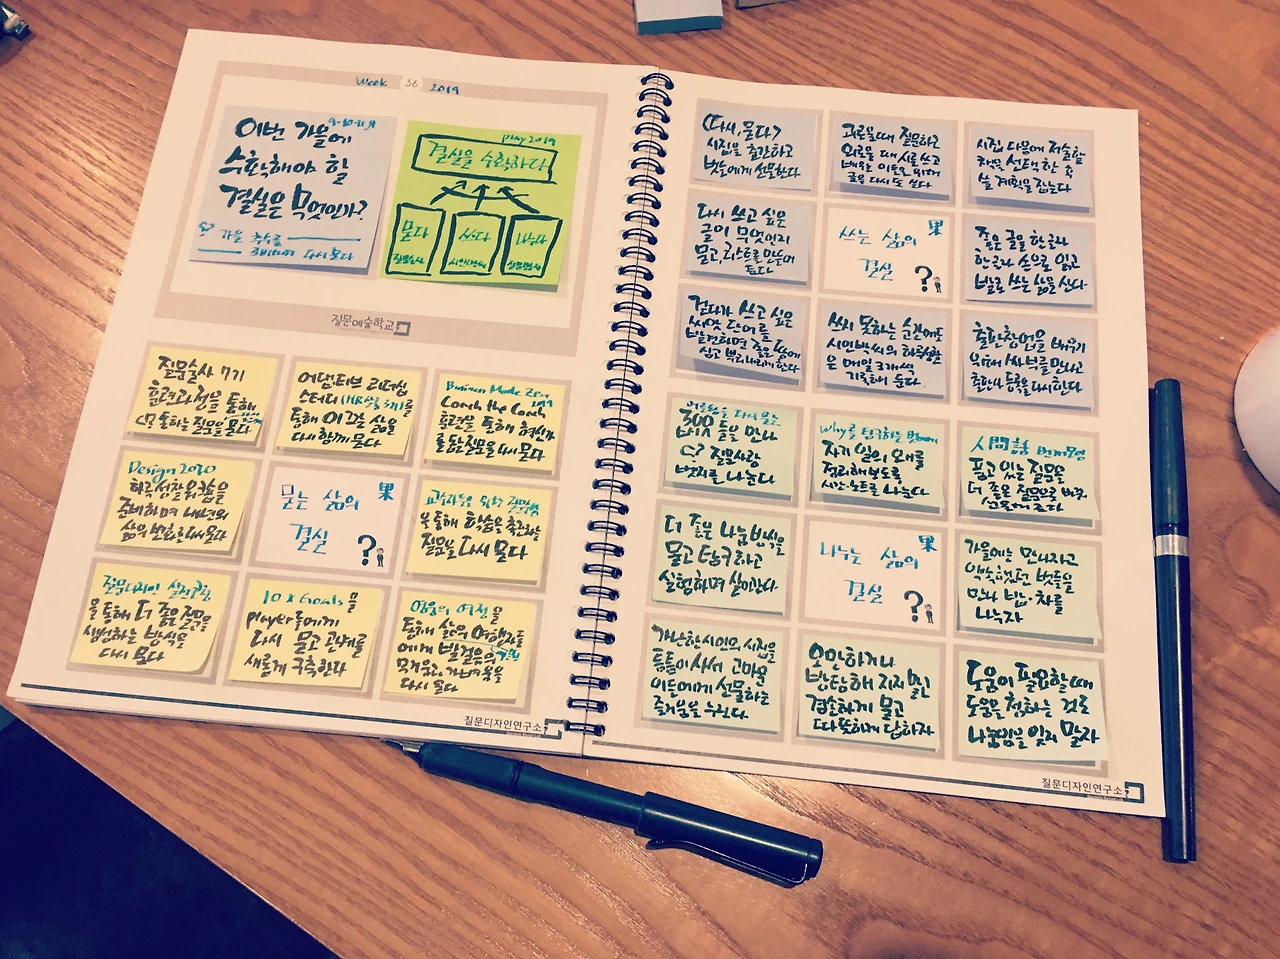 Week 36 2019
이번 가을에
9-10-11月
수확해야 할
결실은 무엇인가?
가을 추수를
다시 묻다
play 2019
결실을 수확하다
묻다
쓰다
나누다
질문예술학교
질문술사 7기
훈련과정을 통해
통하는 질문을 묻다
어댑티브 리더십
스터디
통해 이끄는 삶을
다시 함께 묻다
Business Model Zen
Coach the Coach
훈련을 통해 혁신가
를 돕는 질문을 다시 묻다
Design 2020
회고성찰워크숍을
준비하며 내년의
삶의 변화를 다시 묻다
묻는 삶의
果
결실
?
교수자들을 위한 질문수업
을 통해 학습을 촉진하는
질문을 다시 묻다
질문디자인 실천과정
을 통해 더 좋은 질문을
생성하는 방식을
다시 묻다
10 x Goals 을
player들에게
다시 묻고 관계를
새롭게 구축한다
영웅의 여정을
통해 삶의 여행자들
에게 발걸음의
다시 묻다
질문디자인연구소
<다시, 묻다>
시집을 출간하고
벗들에게 선물한다
괴로울 때 질문하고
외로울 때 시를 쓰고
배우는 이들을 위해
글을 다시 또 쓴다
시집 다음에 저술할
책을 선택한 후
쓸 계획을 잡는다
다시 쓰고 싶은
글이 무엇인지
묻고, 리스트를 만들어
둔다
쓰는 삶의
果
결실
?
좋은 글을 한글자
한글자 손으로 읽고
발로 쓰는 삶을 산다
걷다가 쓰고 싶은
씨앗 단어를
발견하면 좋은 땅에
심고 뿌리내리게 한다
쓰지 못하는 순간에도
시인박씨의
은 매일 3개씩
기록해 둔다.
출판창업을 배우기
위해
출판사 등록을 다시한다
300
들을 만나
질문사랑
벗지를 나눈다
Why를 탐구하는 벗에게
자기 일의 의미를
정리해보도록
시간·노트를 나눈다
人間話
품고 있는 질문을
더 좋은 질문으로 바꿔
선물해 준다
더 좋은 나눔 방식을
묻고 탐구하고
실험하며 살아간다
나누는 삶의
果
결실
?
가을에는 만나자고
약속했던 벗들을
만나 밥·차를
나누자
가난한 시인의 시집을
틈틈이 사서 고마운
이들에게 선물하는
즐거움을 누린다
오만하거나
방탕해지지 말
겸손하게 묻고
따뜻하게 답하자
도움이 필요할 때
도움을 청하는 것도
나눔임을 잊지 말자
질문디자인연구소